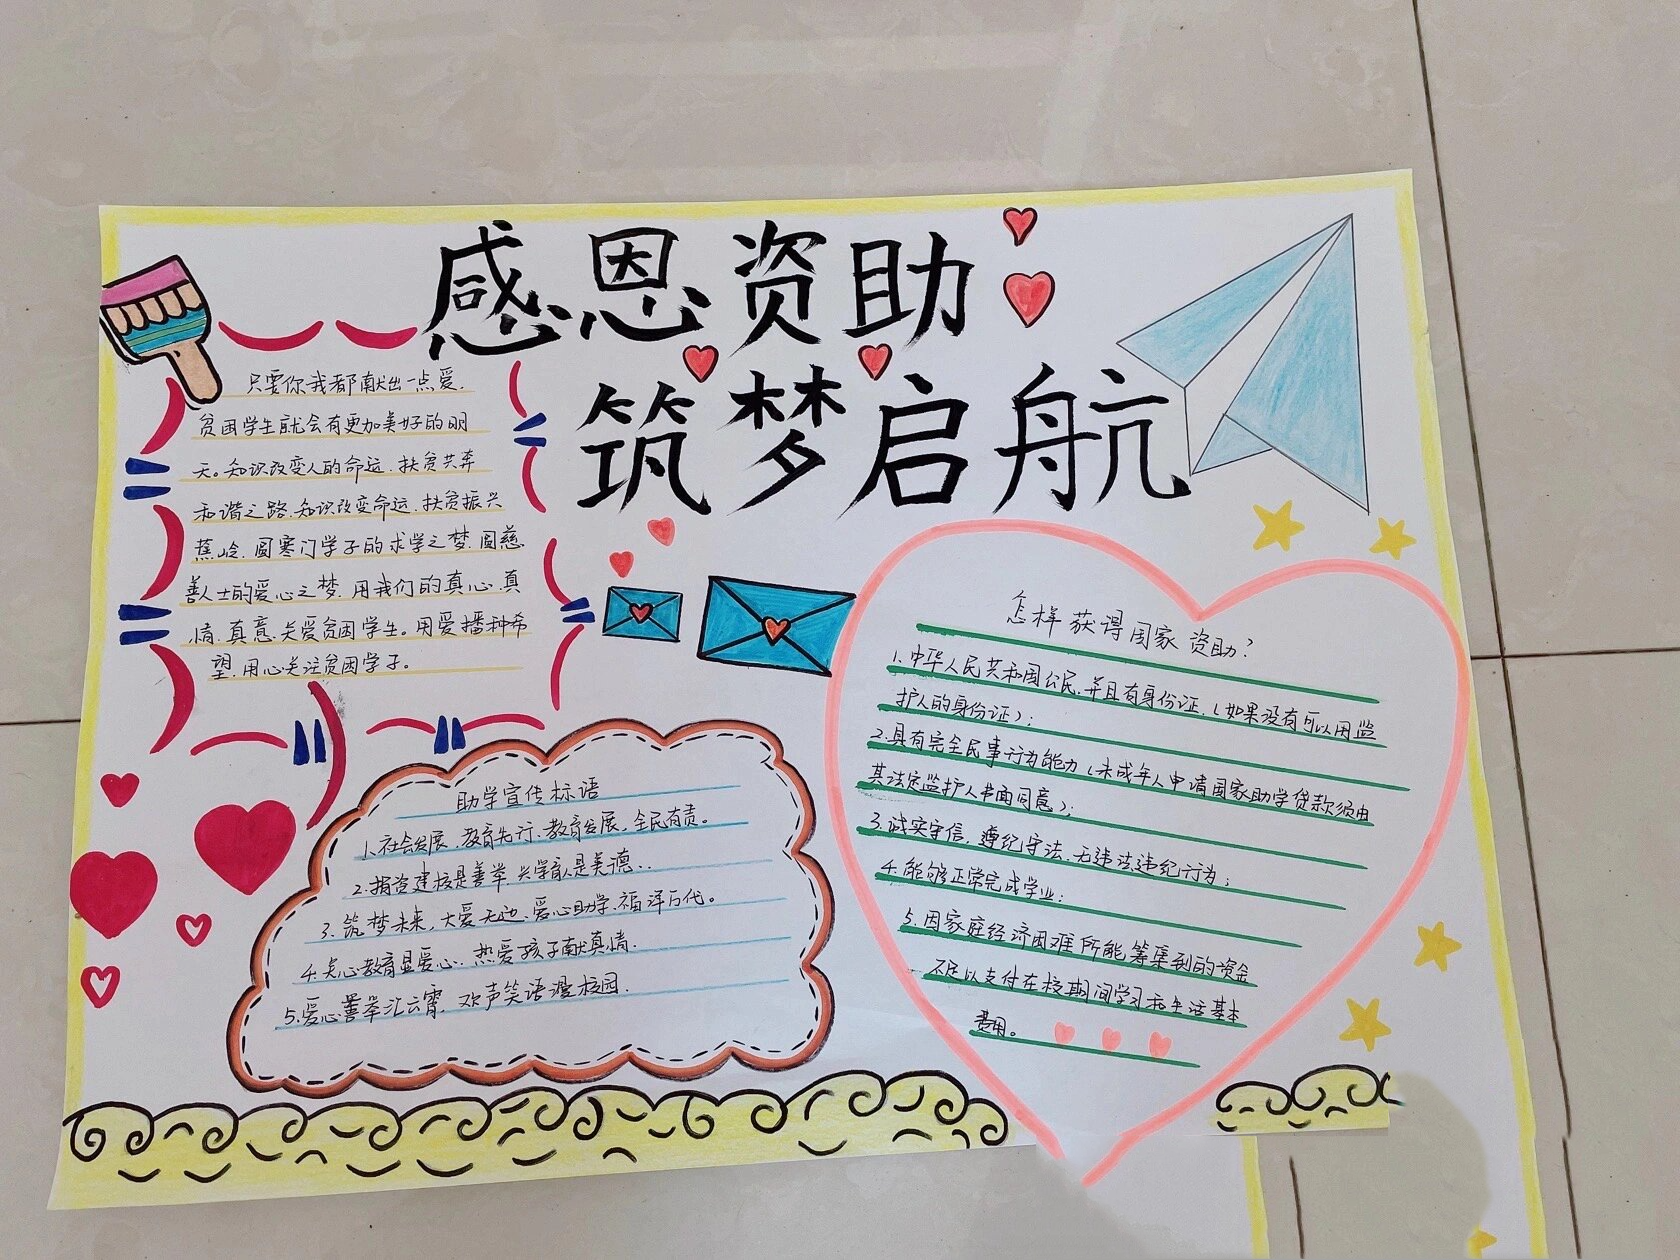 感恩资助
筑梦启航
只要你我都献出一点爱.
贫困学生就会有更加美好的明
天。知识改变人的命运.扶贫共奔
和谐之路.知识改变命运.扶贫振兴
蕉岭.圆寒门学子的求学之梦.圆慈
善人士的爱心之梦.用我们的真心.真
情.真意.关爱贫困学生。用爱播种希
望.用心关注贫困学子。
助学宣传标语
1.社会发展,教育先行.教育发展,全民有责。
2.捐资建校是善举.兴学育人是美德..
3.筑梦未来,大爱无边.爱心助学.福泽万代。
4.关心教育显爱心.热爱孩子献真情.
5.爱心善举汇云霄,欢声笑语漫校园.
怎样获得国家资助?
1.中华人民共和国公民.并且有身份证.(如果没有可以用监
护人的身份证);
2.具有完全民事行为能力(未成年人申请国家助学贷款须由
其法定监护人书面同意);
3.诚实守信,遵纪守法.无违法违纪行为;
4.能够正常完成学业;
5.因家庭经济困难所能筹集到的资金
不足以支付在校期间学习和生活基本
费用。